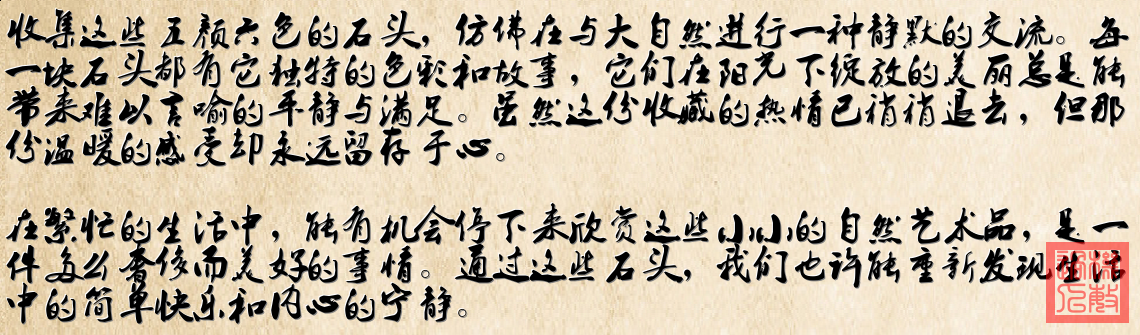 收集这些五颜六色的石头，仿佛在与大自然进行一种静默的交流。每
一块石头都有它独特的色彩和故事，它们在阳光下绽放的美丽总是能
带来难以言喻的平静与满足。虽然这份收藏的热情已稍稍退去，但那
份温暖的感受却永远留存于心。
在繁忙的生活中，能有机会停下来欣赏这些小小的自然艺术品，是一
件多么奢侈而美好的事情。通过这些石头，我们也许能重新发现生活
中的简单快乐和内心的宁静。